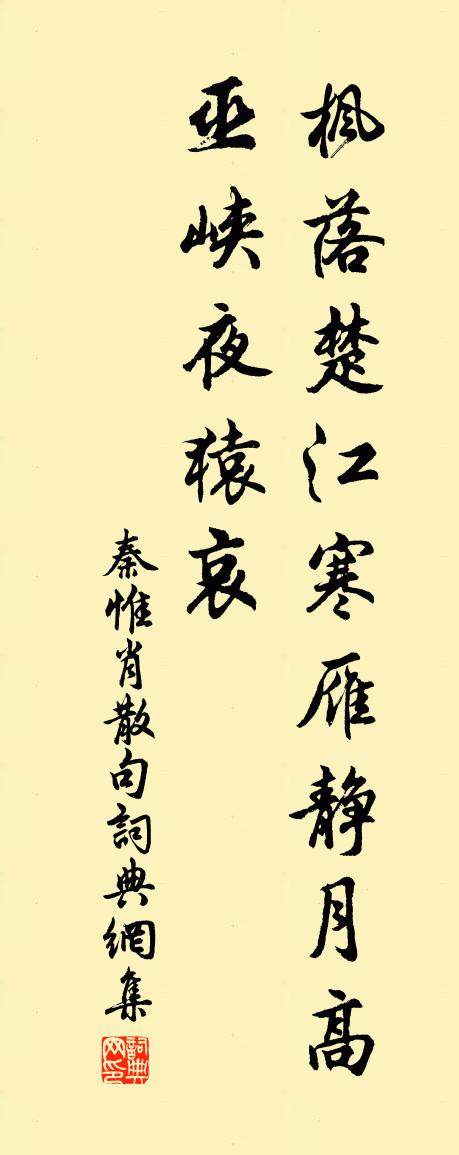 枫落楚江寒雁静月高
巫峡夜猿哀
秦惟肖散句詞典網集
詞典网印